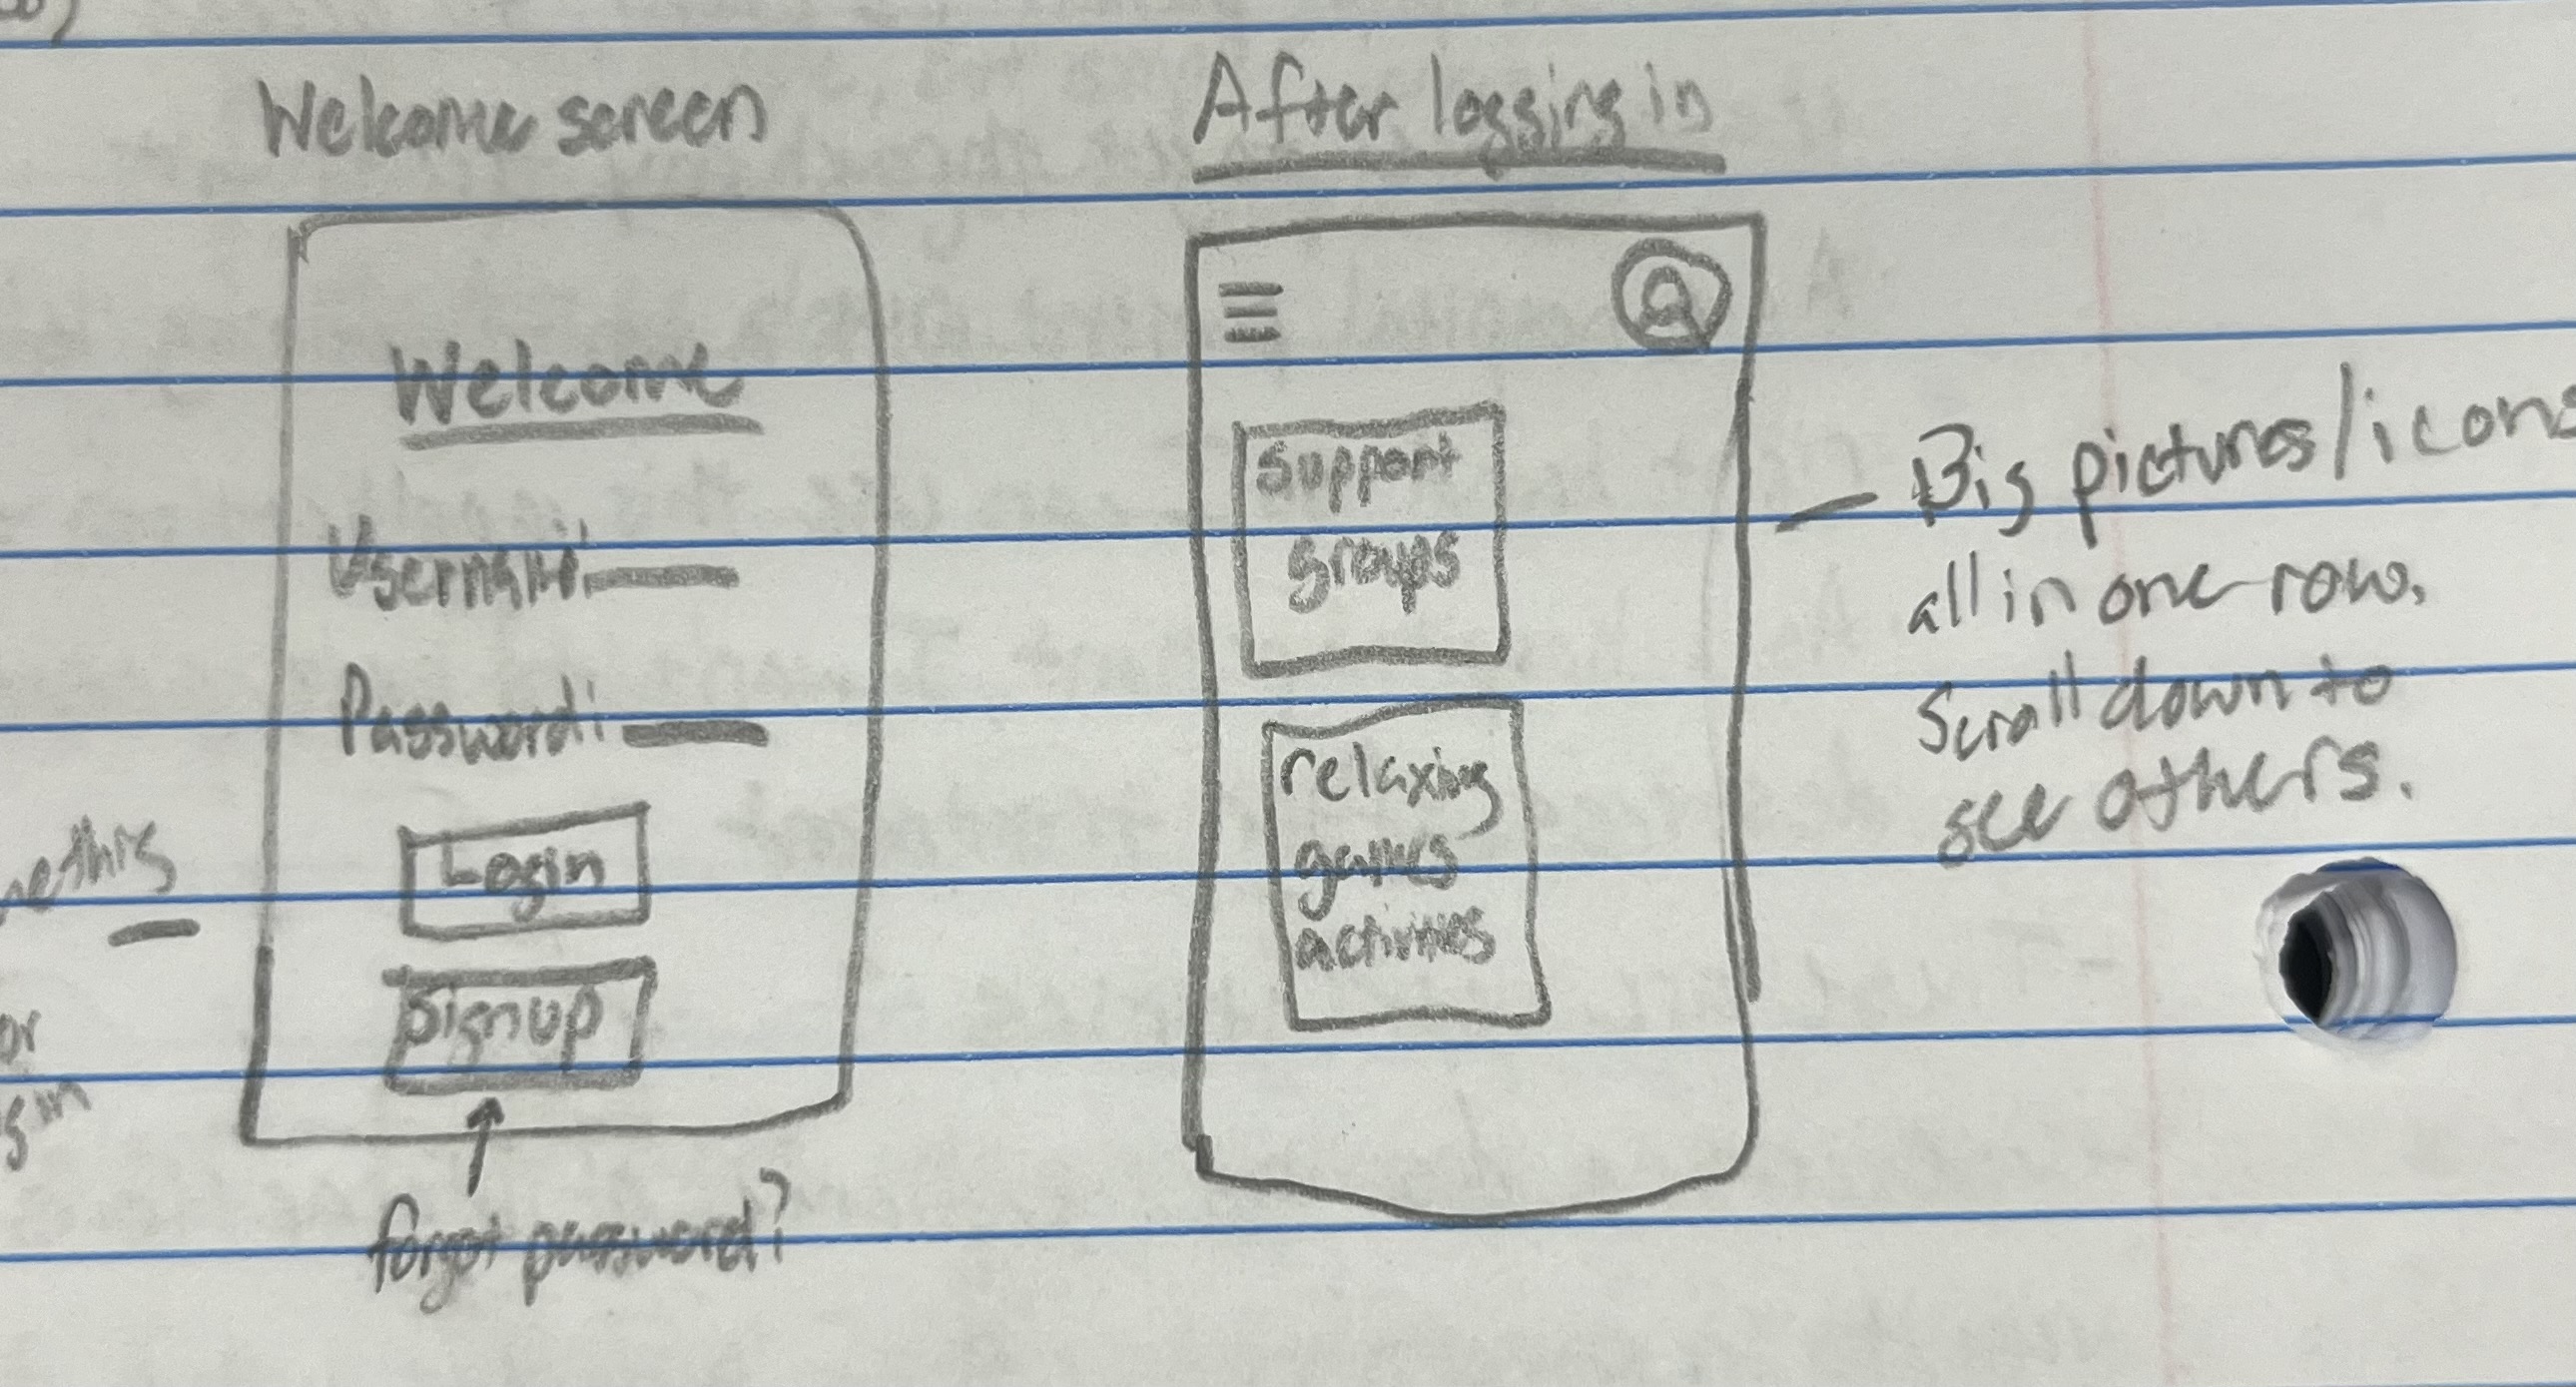 Welcome screen
Welcome
Username:
Password:
Login
Sign up
forgot password?
After logging in
Support
groups
relaxing
games
activities
— Big pictures/icons
all in one row.
Scroll down to
see others.
or